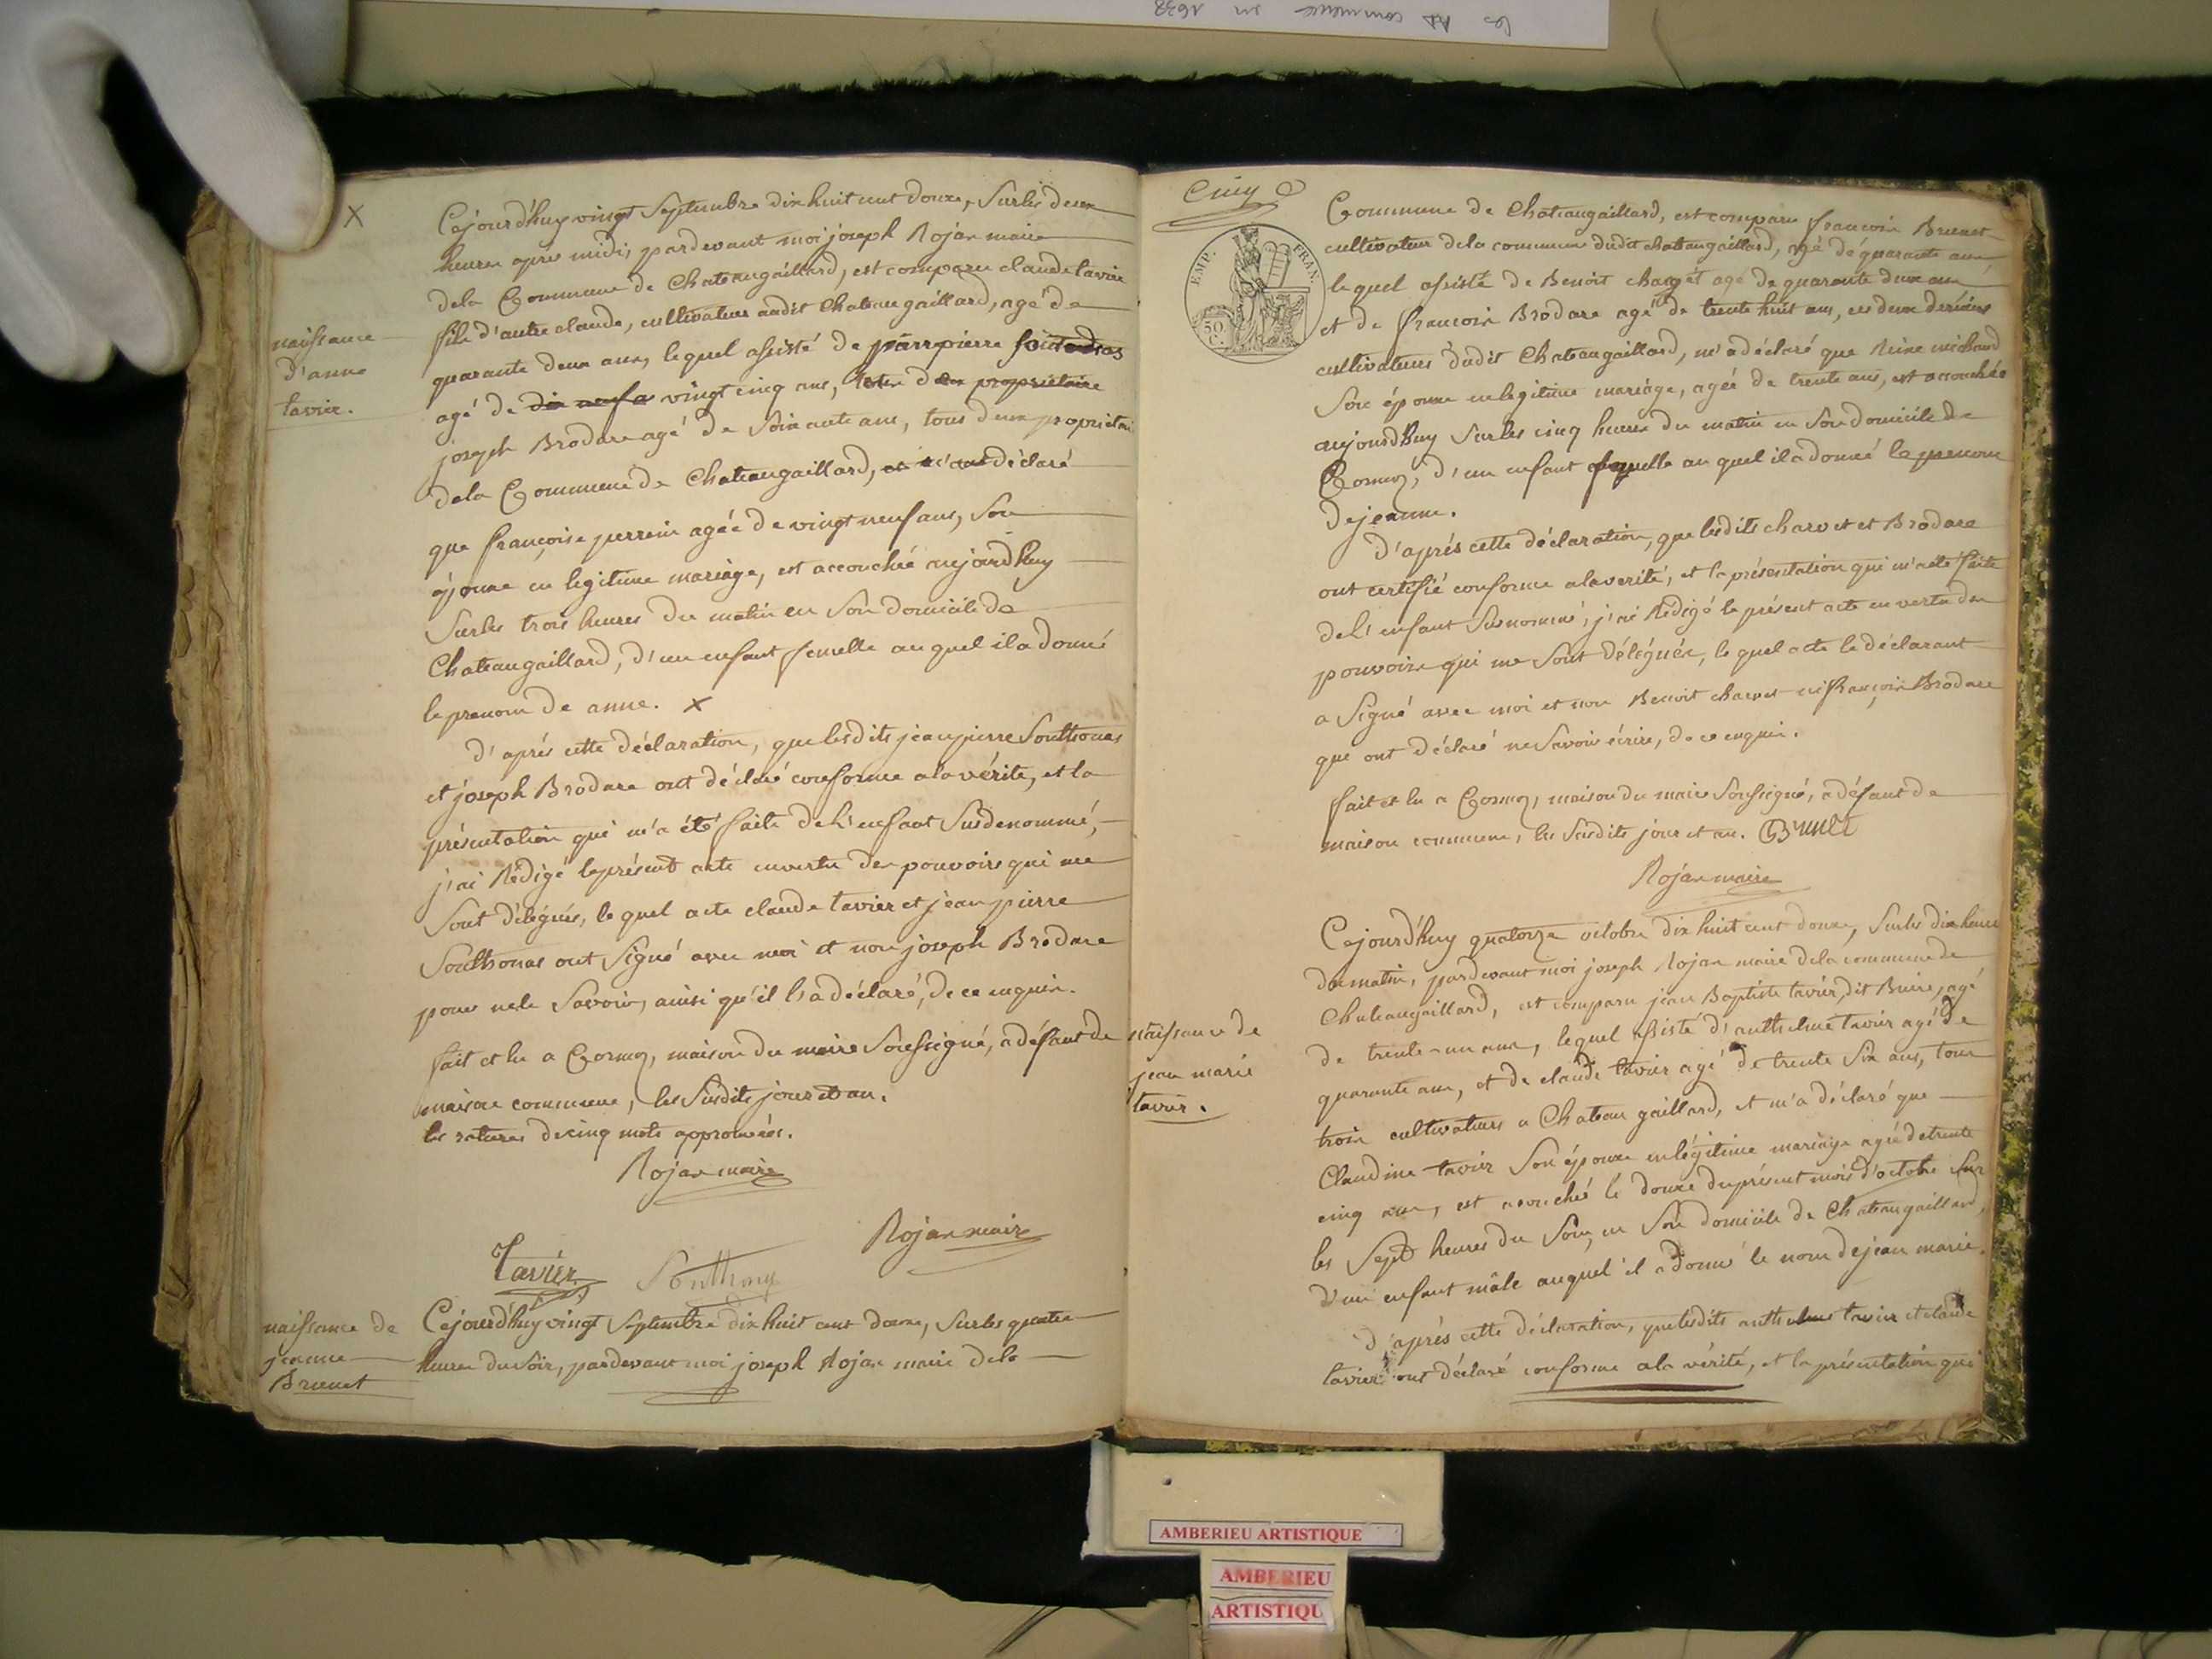 les AD commence en 1692
X
Cejourd'huy vingt Septembre dix huit cent douze, Sur les deux
heures apres midi, pardevant moi joseph Rojan maire
dela Commune de Chateaugaillard, est comparu claude tavier
fils d'autre claude, cultivateur audit Chateaugaillard, agé de
quarante deux ans, lequel assisté de jean pierre
agé de dix neuf a vingt cinq ans, propriétaire
joseph Brodare agé de Soixante ans, tous deux proprietai
dela Commune de Chateaugaillard, et m'ont déclaré
que françoise perrein agée de vingt neuf ans, Son
épouse en legitime mariage, est accouchée aujourdhuy
Sur les trois heures du matin en Son domicile de
Chateaugaillard, d'un enfant femelle au quel il a donné
le prenom de anne. X
d'aprés cette déclaration, que lesdits jean pierre Southonas
et joseph Brodare ont déclaré conforme ala vérite, et la
présentation qui m'a été faite de l'enfant Susdenommé,
j'ai Rédigé le présent acte en vertu des pouvoirs qui me
Sont délégués, le quel acte claude tavier et jean pierre
Southonas ont Signé avec moi et non joseph Brodare
pour ne le Savoir, ainsi qu'il l'a déclaré, de ce enquis.
fait et lu a Cormoz, maison du maire Soussigné, a défaut de
maison commune, les Susdits jour et an.
les ratures de cinq mots approuvées.
Rojan maire
Rojan maire
Tavier
naissance
d'anne
tavier.
naissance de
jeanne
Brunet
Cejourd'huy vingt Septembre dix huit cent douze, Sur les quatre
heures du Soir, pardevant moi joseph Rojan maire dela
Cinq
EMP. FRAN.
50 C.
Commune de Chateaugaillard, est comparu françois Brunet
cultivateur dela commune dudit chateaugaillard, agé de quarante ans
lequel assisté de Benoit charvet agé de quarante deux ans
et de françois Brodare agé de trente huit ans, ces deux derniers
cultivateurs dudit Chateaugaillard, m'a déclaré que Reine michaud
Son épouse en legitime mariage, agée de trente ans, est accouchée
aujourdhuy Sur les cinq heures du matin en Son domicile de
Cormoz, d'un enfant femelle au quel il a donné le prenom
de jeanne.
D'aprés cette déclaration, que lesdits charvet et Brodare
ont certifié conforme ala verité, et la présentation qui m'a été faite
de l'enfant Susnommé, j'ai Rédigé le présent acte en vertu des
pouvoirs qui me Sont délégués, le quel acte le déclarant
a Signé avec moi et non Benoit charvet ni françois Brodare
que ont déclaré ne Savoir écrire, de ce enquis.
fait et lu a Cormoz, maison du maire Soussigné, a défaut de
maison commune, les Susdits jour et an. Brunet
Rojan maire
naissance de
jean marie
tavier.
Cejourd'huy quatorze octobre dix huit cent douze, Sur les dix heures
du matin, pardevant moi joseph Rojan maire dela commune de
Chateaugaillard, est comparu jean Baptiste tavier, dit Buire, agé
de trente-un ans, lequel assisté d'anthelme tavier agé de
quarante ans, et de claude tavier agé de trente Six ans, tous
trois cultivateurs a Chateaugaillard, et m'a déclaré que
Claudine tavier Son épouse en légitime mariage agée de trente
cinq ans, est acouché le douze du présent mois d'octobre Sur
les Sept heures du Soir, en Son domicile de Chateaugaillard,
d'un enfant mâle auquel il a donné le nom de jean marie.
d'aprés cette déclaration, que lesdits anthelme tavier et claude
tavier ont déclaré conforme ala vérité, et la présentation qui
AMBERIEU ARTISTIQUE
AMBERIEU
ARTISTIQU